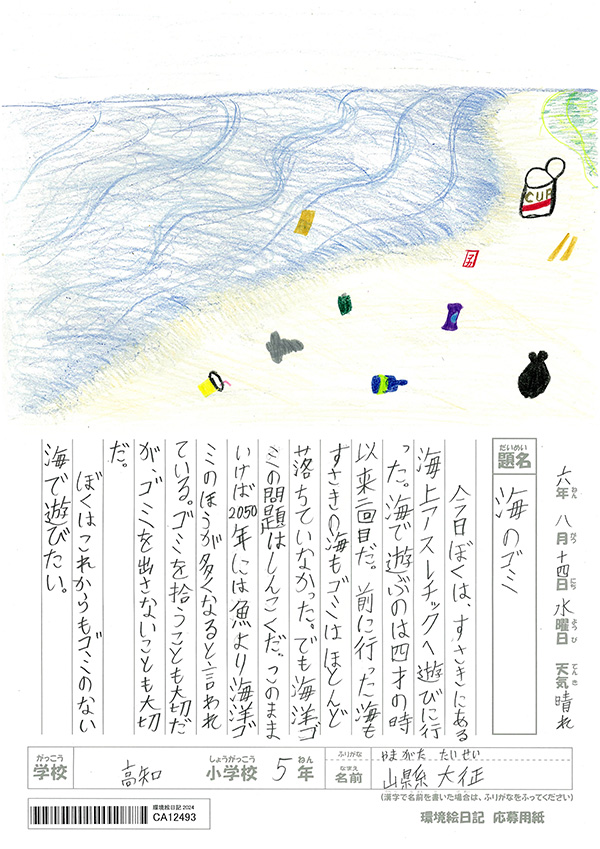 CUP
六年 八月 十四日 水曜日 天気 晴れ
ねん がつ にち ようび てんき
だいめい
題名
海のゴミ
今日ぼくは、すさきにある
海上アスレチックへ遊びに行
った。海で遊ぶのは四才の時
以来二回目だ。前に行った海も
すさきの海もゴミはほとんど
落ちていなかった。でも海洋ゴ
ミの問題はしんこくだ。このまま
いけば2050年には魚より海洋ゴ
ミのほうが多くなると言われ
ている。ゴミを拾うことも大切だ
が、ゴミを出さないことも大切
だ。
ぼくはこれからもゴミのない
海で遊びたい。
がっこう しょうがっこう ねん
学校 高知 小学校 5年
ふりがな やまがた たいせい
なまえ
名前 山縣 大征
(漢字で名前を書いた場合は、ふりがなをふってください)
環境絵日記 2024
CA12493
環境絵日記 応募用紙